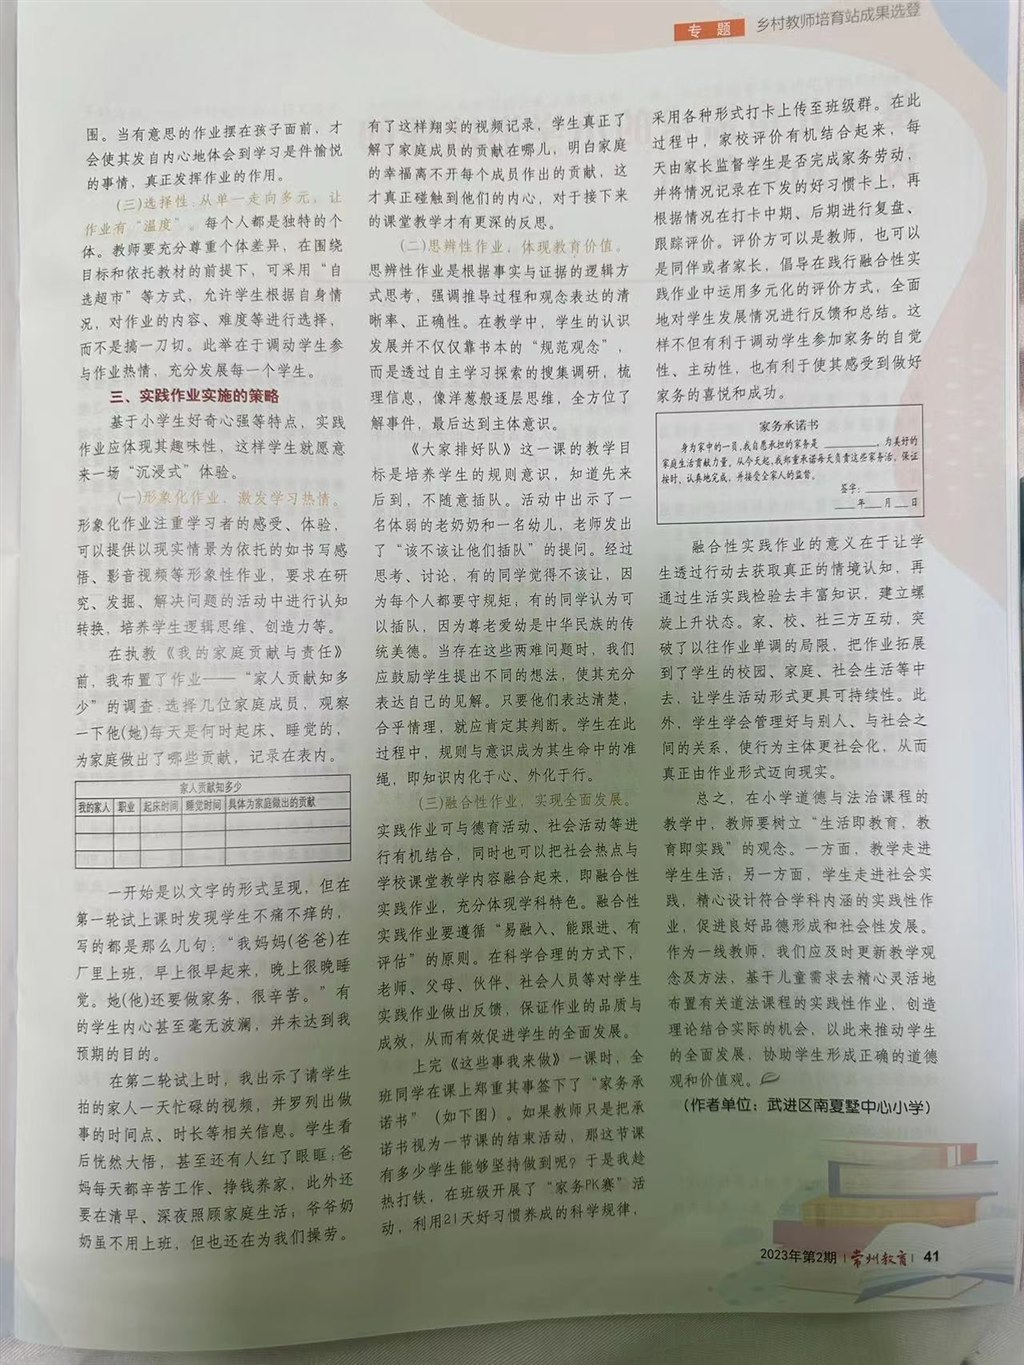 专 题 乡村教师培育站成果选登
围。当有意思的作业摆在孩子面前，才
会使其发自内心地体会到学习是件愉悦
的事情，真正发挥作业的作用。
(三)选择性：从单一走向多元，让
作业有“温度”。每个人都是独特的个
体。教师要充分尊重个体差异，在围绕
目标和依托教材的前提下，可采用“自
选超市”等方式，允许学生根据自身情
况，对作业的内容、难度等进行选择，
而不是搞一刀切。此举在于调动学生参
与作业热情，充分发展每一个学生。
三、实践作业实施的策略
基于小学生好奇心强等特点，实践
作业应体现其趣味性，这样学生就愿意
来一场“沉浸式”体验。
(一)形象化作业，激发学习热情。
形象化作业注重学习者的感受、体验，
可以提供以现实情景为依托的如书写感
悟、影音视频等形象性作业，要求在研
究、发掘、解决问题的活动中进行认知
转换，培养学生逻辑思维、创造力等。
在执教《我的家庭贡献与责任》
前，我布置了作业——“家人贡献知多
少”的调查：选择几位家庭成员，观察
一下他(她)每天是何时起床、睡觉的，
为家庭做出了哪些贡献，记录在表内。
家人贡献知多少
我的家人 职业 起床时间 睡觉时间 具体为家庭做出的贡献
一开始是以文字的形式呈现，但在
第一轮试上课时发现学生不痛不痒的，
写的都是那么几句：“我妈妈(爸爸)在
厂里上班，早上很早起来，晚上很晚睡
觉。她(他)还要做家务，很辛苦。”有
的学生内心甚至毫无波澜，并未达到我
预期的目的。
在第二轮试上时，我出示了请学生
拍的家人一天忙碌的视频，并罗列出做
事的时间点、时长等相关信息。学生看
后恍然大悟，甚至还有人红了眼眶：爸
妈每天都辛苦工作、挣钱养家，此外还
要在清早、深夜照顾家庭生活；爷爷奶
奶虽不用上班，但也还在为我们操劳。
有了这样翔实的视频记录，学生真正了
解了家庭成员的贡献在哪儿，明白家庭
的幸福离不开每个成员作出的贡献，这
才真正碰触到他们的内心，对于接下来
的课堂教学才有更深的反思。
(二)思辨性作业，体现教育价值。
思辨性作业是根据事实与证据的逻辑方
式思考，强调推导过程和观念表达的清
晰率、正确性。在教学中，学生的认识
发展并不仅仅靠书本的“规范观念”，
而是透过自主学习探索的搜集调研，梳
理信息，像洋葱般逐层思维，全方位了
解事件，最后达到主体意识。
《大家排好队》这一课的教学目
标是培养学生的规则意识，知道先来
后到，不随意插队。活动中出示了一
名体弱的老奶奶和一名幼儿，老师发出
了“该不该让他们插队”的提问。经过
思考、讨论，有的同学觉得不该让，因
为每个人都要守规矩；有的同学认为可
以插队，因为尊老爱幼是中华民族的传
统美德。当存在这些两难问题时，我们
应鼓励学生提出不同的想法，使其充分
表达自己的见解。只要他们表达清楚，
合乎情理，就应肯定其判断。学生在此
过程中，规则与意识成为其生命中的准
绳，即知识内化于心、外化于行。
(三)融合性作业，实现全面发展。
实践作业可与德育活动、社会活动等进
行有机结合，同时也可以把社会热点与
学校课堂教学内容融合起来，即融合性
实践作业，充分体现学科特色。融合性
实践作业要遵循“易融入、能跟进、有
评估”的原则。在科学合理的方式下，
老师、父母、伙伴、社会人员等对学生
实践作业做出反馈，保证作业的品质与
成效，从而有效促进学生的全面发展。
上完《这些事我来做》一课时，全
班同学在课上郑重其事签下了“家务承
诺书”（如下图）。如果教师只是把承
诺书视为一节课的结束活动，那这节课
有多少学生能够坚持做到呢？于是我趁
热打铁，在班级开展了“家务PK赛”活
动，利用21天好习惯养成的科学规律，
采用各种形式打卡上传至班级群。在此
过程中，家校评价有机结合起来，每
天由家长监督学生是否完成家务劳动，
并将情况记录在下发的好习惯卡上，再
根据情况在打卡中期、后期进行复盘、
跟踪评价。评价方可以是教师，也可以
是同伴或者家长，倡导在践行融合性实
践作业中运用多元化的评价方式，全面
地对学生发展情况进行反馈和总结。这
样不但有利于调动学生参加家务的自觉
性、主动性，也有利于使其感受到做好
家务的喜悦和成功。
家务承诺书
身为家中的一员，我自愿承担的家务是________，为美好的
家庭生活贡献力量。从今天起，我郑重承诺每天负责这些家务活，保证
按时、认真地完成，并接受全家人的监督。
签字：________
___年___月___日
融合性实践作业的意义在于让学
生透过行动去获取真正的情境认知，再
通过生活实践检验去丰富知识，建立螺
旋上升状态。家、校、社三方互动，突
破了以往作业单调的局限，把作业拓展
到了学生的校园、家庭、社会生活等中
去，让学生活动形式更具可持续性。此
外，学生学会管理好与别人、与社会之
间的关系，使行为主体更社会化，从而
真正由作业形式迈向现实。
总之，在小学道德与法治课程的
教学中，教师要树立“生活即教育，教
育即实践”的观念。一方面，教学走进
学生生活；另一方面，学生走进社会实
践，精心设计符合学科内涵的实践性作
业，促进良好品德形成和社会性发展。
作为一线教师，我们应及时更新教学观
念及方法，基于儿童需求去精心灵活地
布置有关道法课程的实践性作业，创造
理论结合实际的机会，以此来推动学生
的全面发展，协助学生形成正确的道德
观和价值观。
（作者单位：武进区南夏墅中心小学）
2023年第2期 | 常州教育 | 41